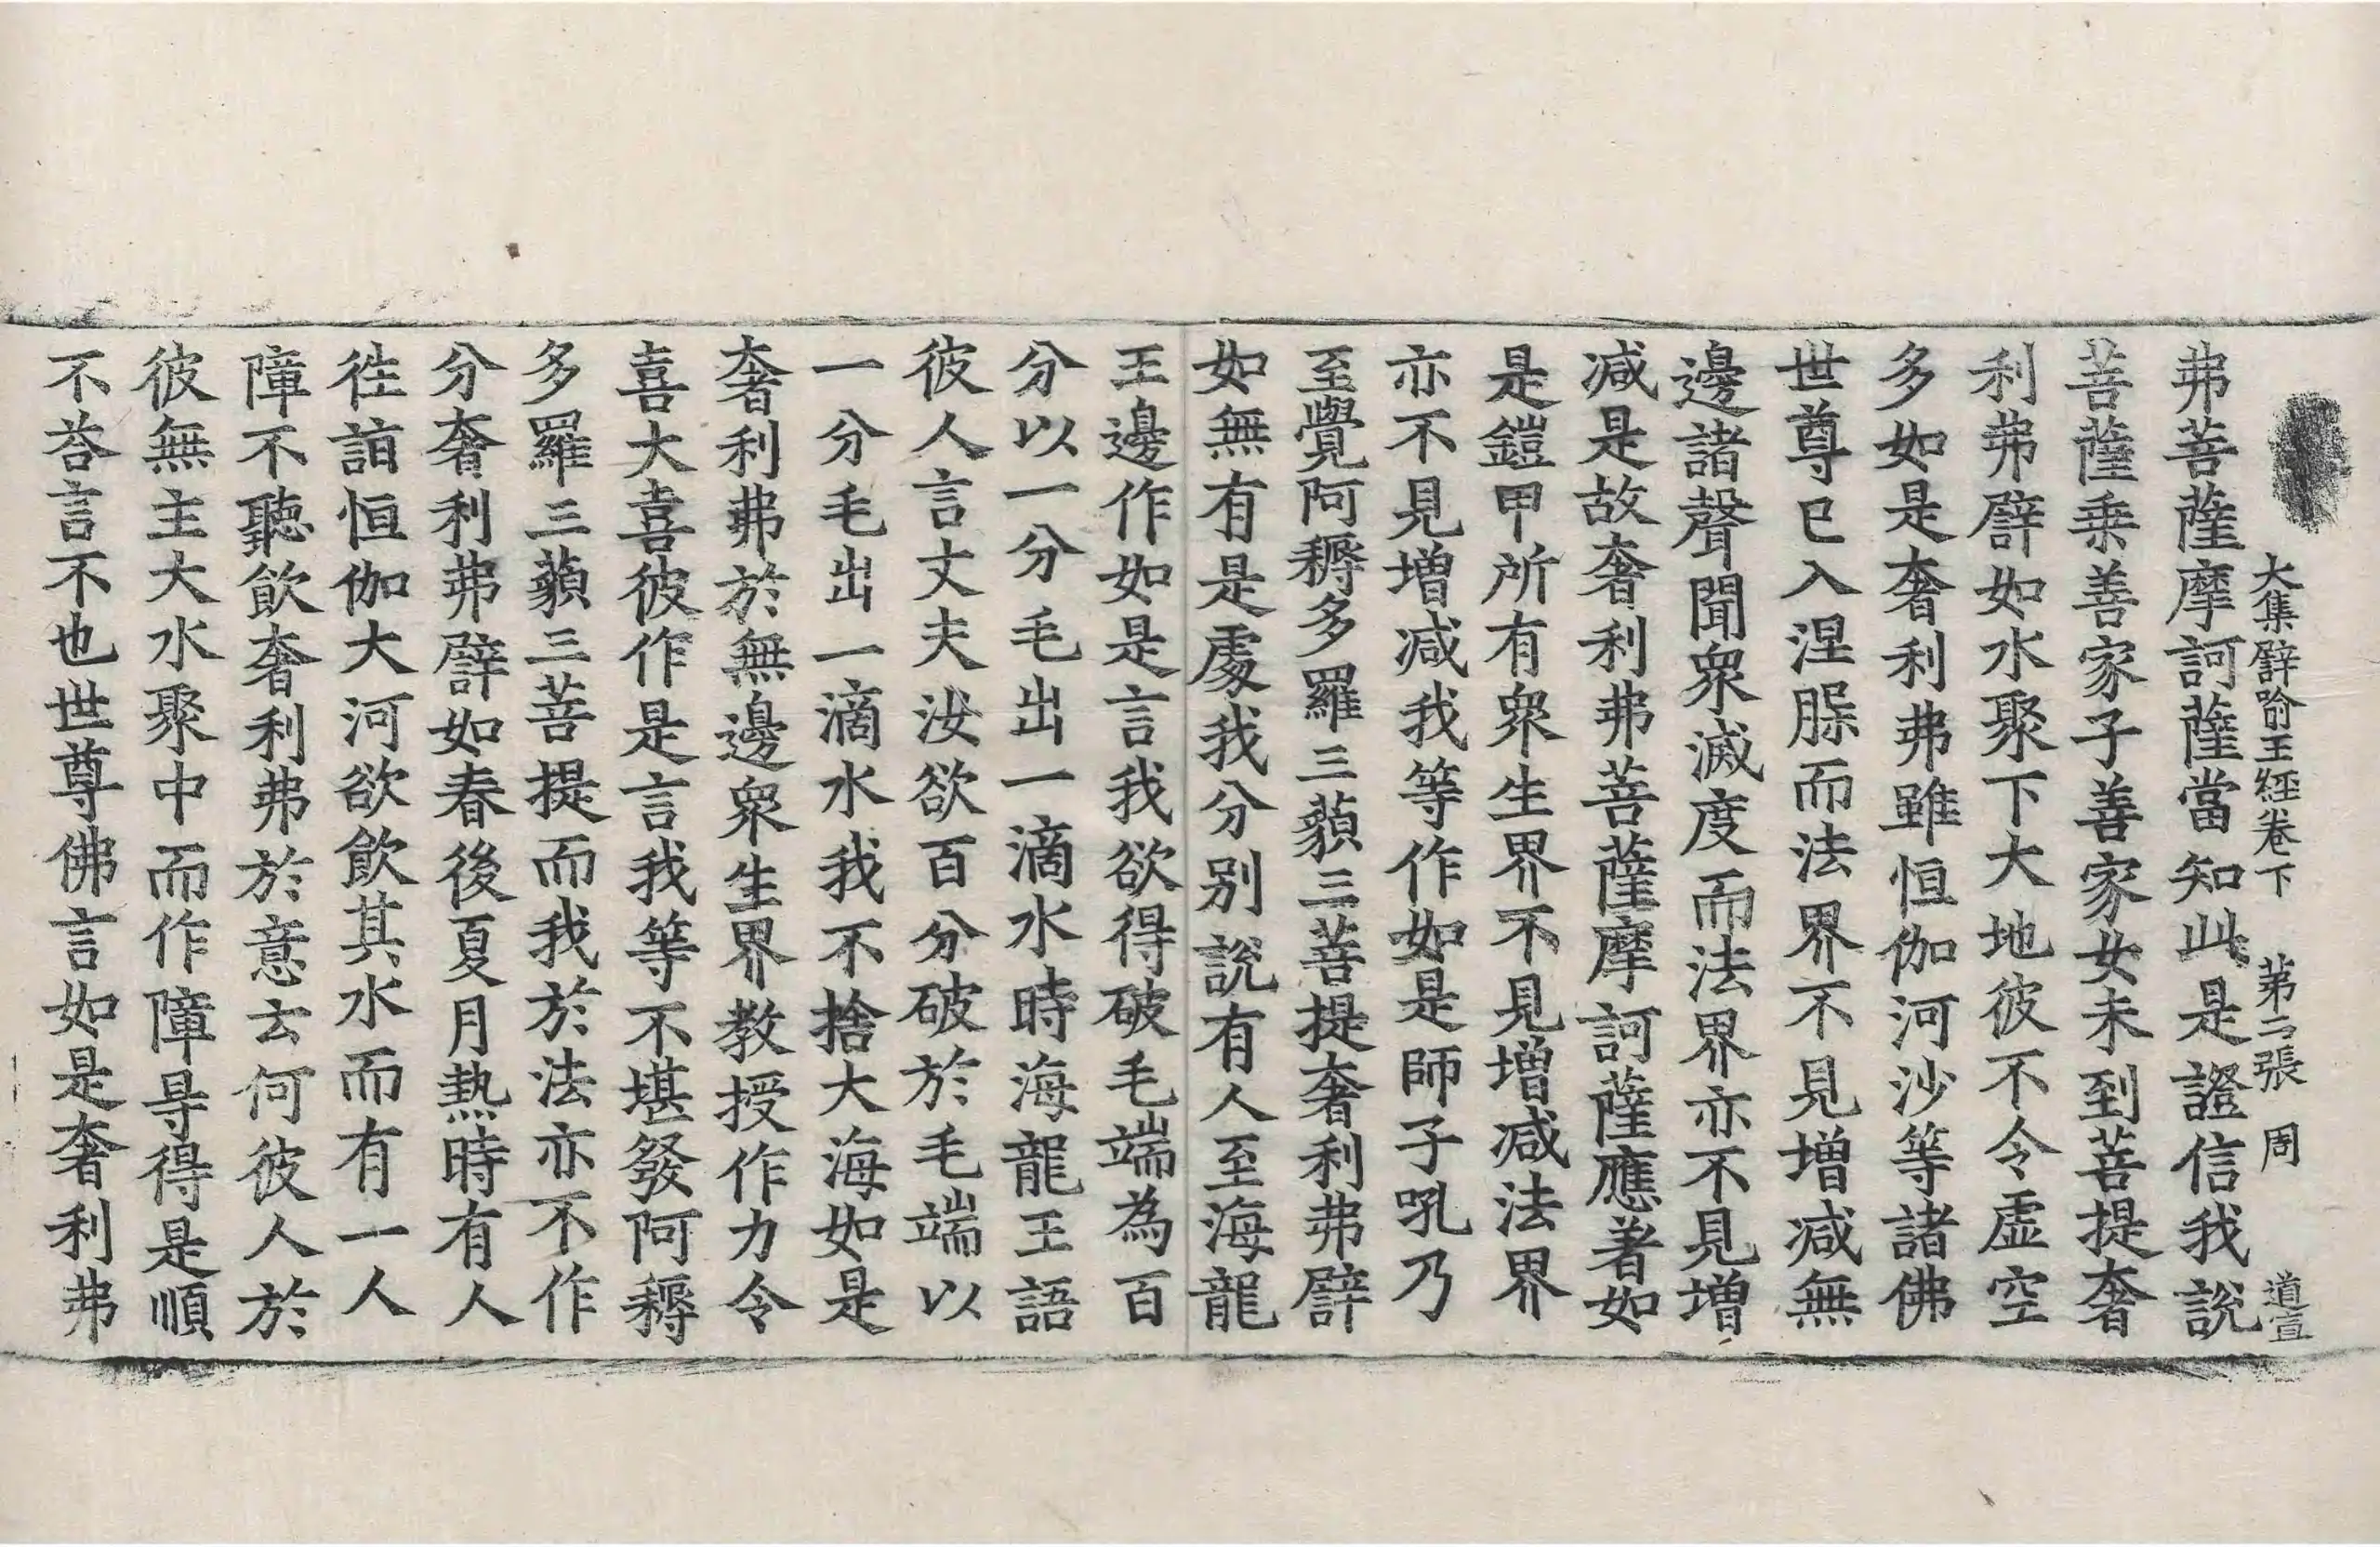 大集譬喻王經卷下 第二張 周 道宣
弗菩薩摩訶薩當知此是證信我說
菩薩乗善家子善家女未到菩提奢
利弗譬如水聚下大地彼不令虛空
多如是奢利弗雖恒伽河沙等諸佛
世尊已入涅槃而法界不見增減無
邊諸聲聞眾滅度而法界亦不見增
減是故奢利弗菩薩摩訶薩應著如
是鎧甲所有眾生界不見增減法界
亦不見增減我等作如是師子吼乃
至覺阿耨多羅三藐三菩提奢利弗譬
如無有是處我分別說有人至海龍
王邊作如是言我欲得破毛端為百
分以一分毛出一滴水時海龍王語
彼人言丈夫汝欲百分破於毛端以
一分毛出一滴水我不捨大海如是
奢利弗於無邊眾生界教授作力令
喜大喜彼作是言我等不堪發阿耨
多羅三藐三菩提而我於法亦不作
分奢利弗譬如春後夏月熱時有人
徃詣恒伽大河欲飲其水而有一人
障不聽飲奢利弗於意云何彼人於
彼無主大水聚中而作障㝵得是順
不荅言不也世尊佛言如是奢利弗